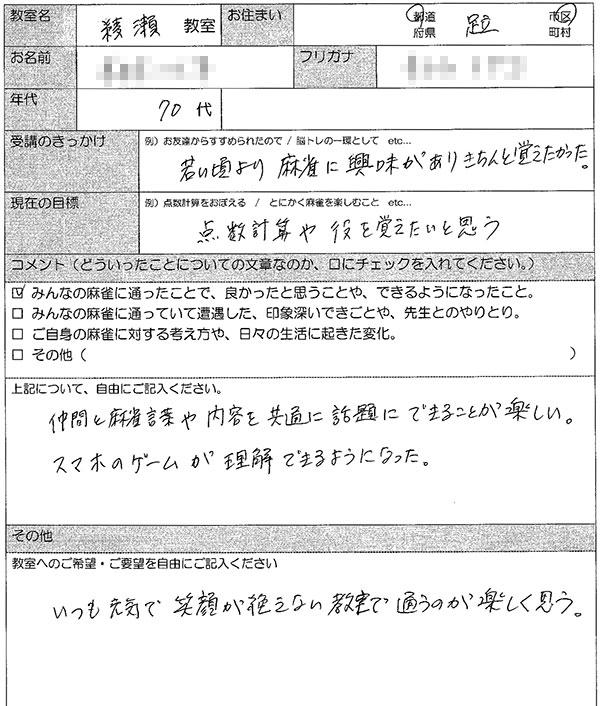 教室名 綾瀬 教室 お住まい 都道府県 足立 市区町村
お名前 フリガナ
年代 70 代
受講のきっかけ 例）お友達からすすめられたので / 脳トレの一環として etc...
若い頃より 麻雀に興味がありきちんと覚えたかった。
現在の目標 例）点数計算をおぼえる / とにかく麻雀を楽しむこと etc...
点数計算や 役を覚えたいと思う
コメント（どういったことについての文章なのか、口にチェックを入れてください。）
☑ みんなの麻雀に通ったことで、良かったと思うことや、できるようになったこと。
□ みんなの麻雀に通っていて遭遇した、印象深いできごとや、先生とのやりとり。
□ ご自身の麻雀に対する考え方や、日々の生活に起きた変化。
□ その他（ ）
上記について、自由にご記入ください。
仲間と麻雀言葉や内容を共通に話題にできることが楽しい。
スマホのゲームが理解できるようになった。
その他
教室へのご希望・ご要望を自由にご記入ください
いつも元気で笑顔が絶えない教室で通うのが楽しく思う。